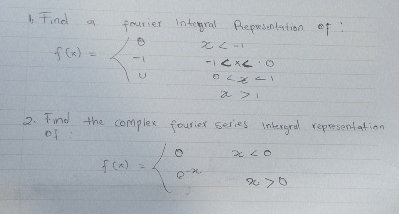 1. Find a fourier Integral Representation of :
f(x) = 0 x < -1
-1 -1 < x < 0
0 0 < x < 1
x > 1
2. Find the complex fourier series Intergral representation
of :
f(x) = 0 x < 0
e^-x x > 0